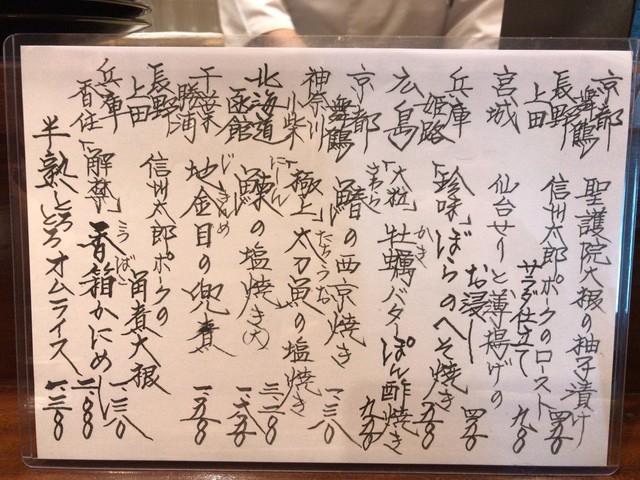 京都 舞鶴 聖護院大根の柚子漬け
長野 上田 信州太郎ポークのロースト サラダ仕立て 九八〇
宮城 仙台せりと薄揚げの お浸し
兵庫 姫路 「珍味」ぼらのへそ焼き
広島 「大粒」牡蠣バターぽん酢焼き かき
京都 舞鶴 鰆の西京焼き さわら 一、三八〇
神奈川 小柴 「極上」太刀魚の塩焼き たちうお
北海道 函館 鰊の塩焼き(大) にしん
千葉 勝浦 地金目の兜煮 じきんめ
長野 上田 信州太郎ポークの 角煮大根 一、一三八〇
兵庫 香住 「解禁」香箱かにめし こうばこ
半熟とろとろオムライス 一、三八〇